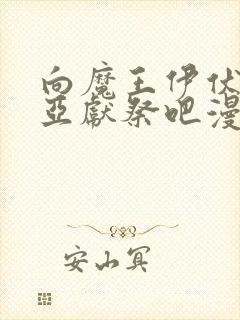 向魔王伊伏
亞獻祭吧漫
安山冥